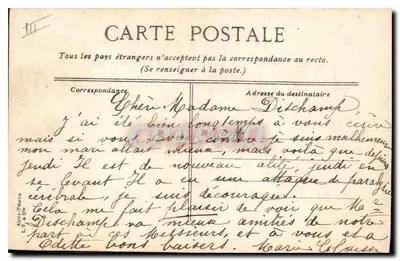 III
CARTE POSTALE
Tous les pays étrangers n'acceptent pas la correspondance au recto.
(Se renseigner à la poste.)
Correspondance
Adresse du destinataire
Chère Madame Dischamp
J'ai été bien longtemps à vous écrire
mais si vous je suis malheureuse
mon mari allait mieux, mais voilà que depuis
jeudi Il est de nouveau alité, jeudi en
se levant Il a eu une attaque de paralysie
cérébrale, je suis découragée.
Cela me fait plaisir de voir que Mr
Dischamp va mieux amitiés de notre
part à ces Messieurs, et à vous et à
Odette bons baisers. Marie